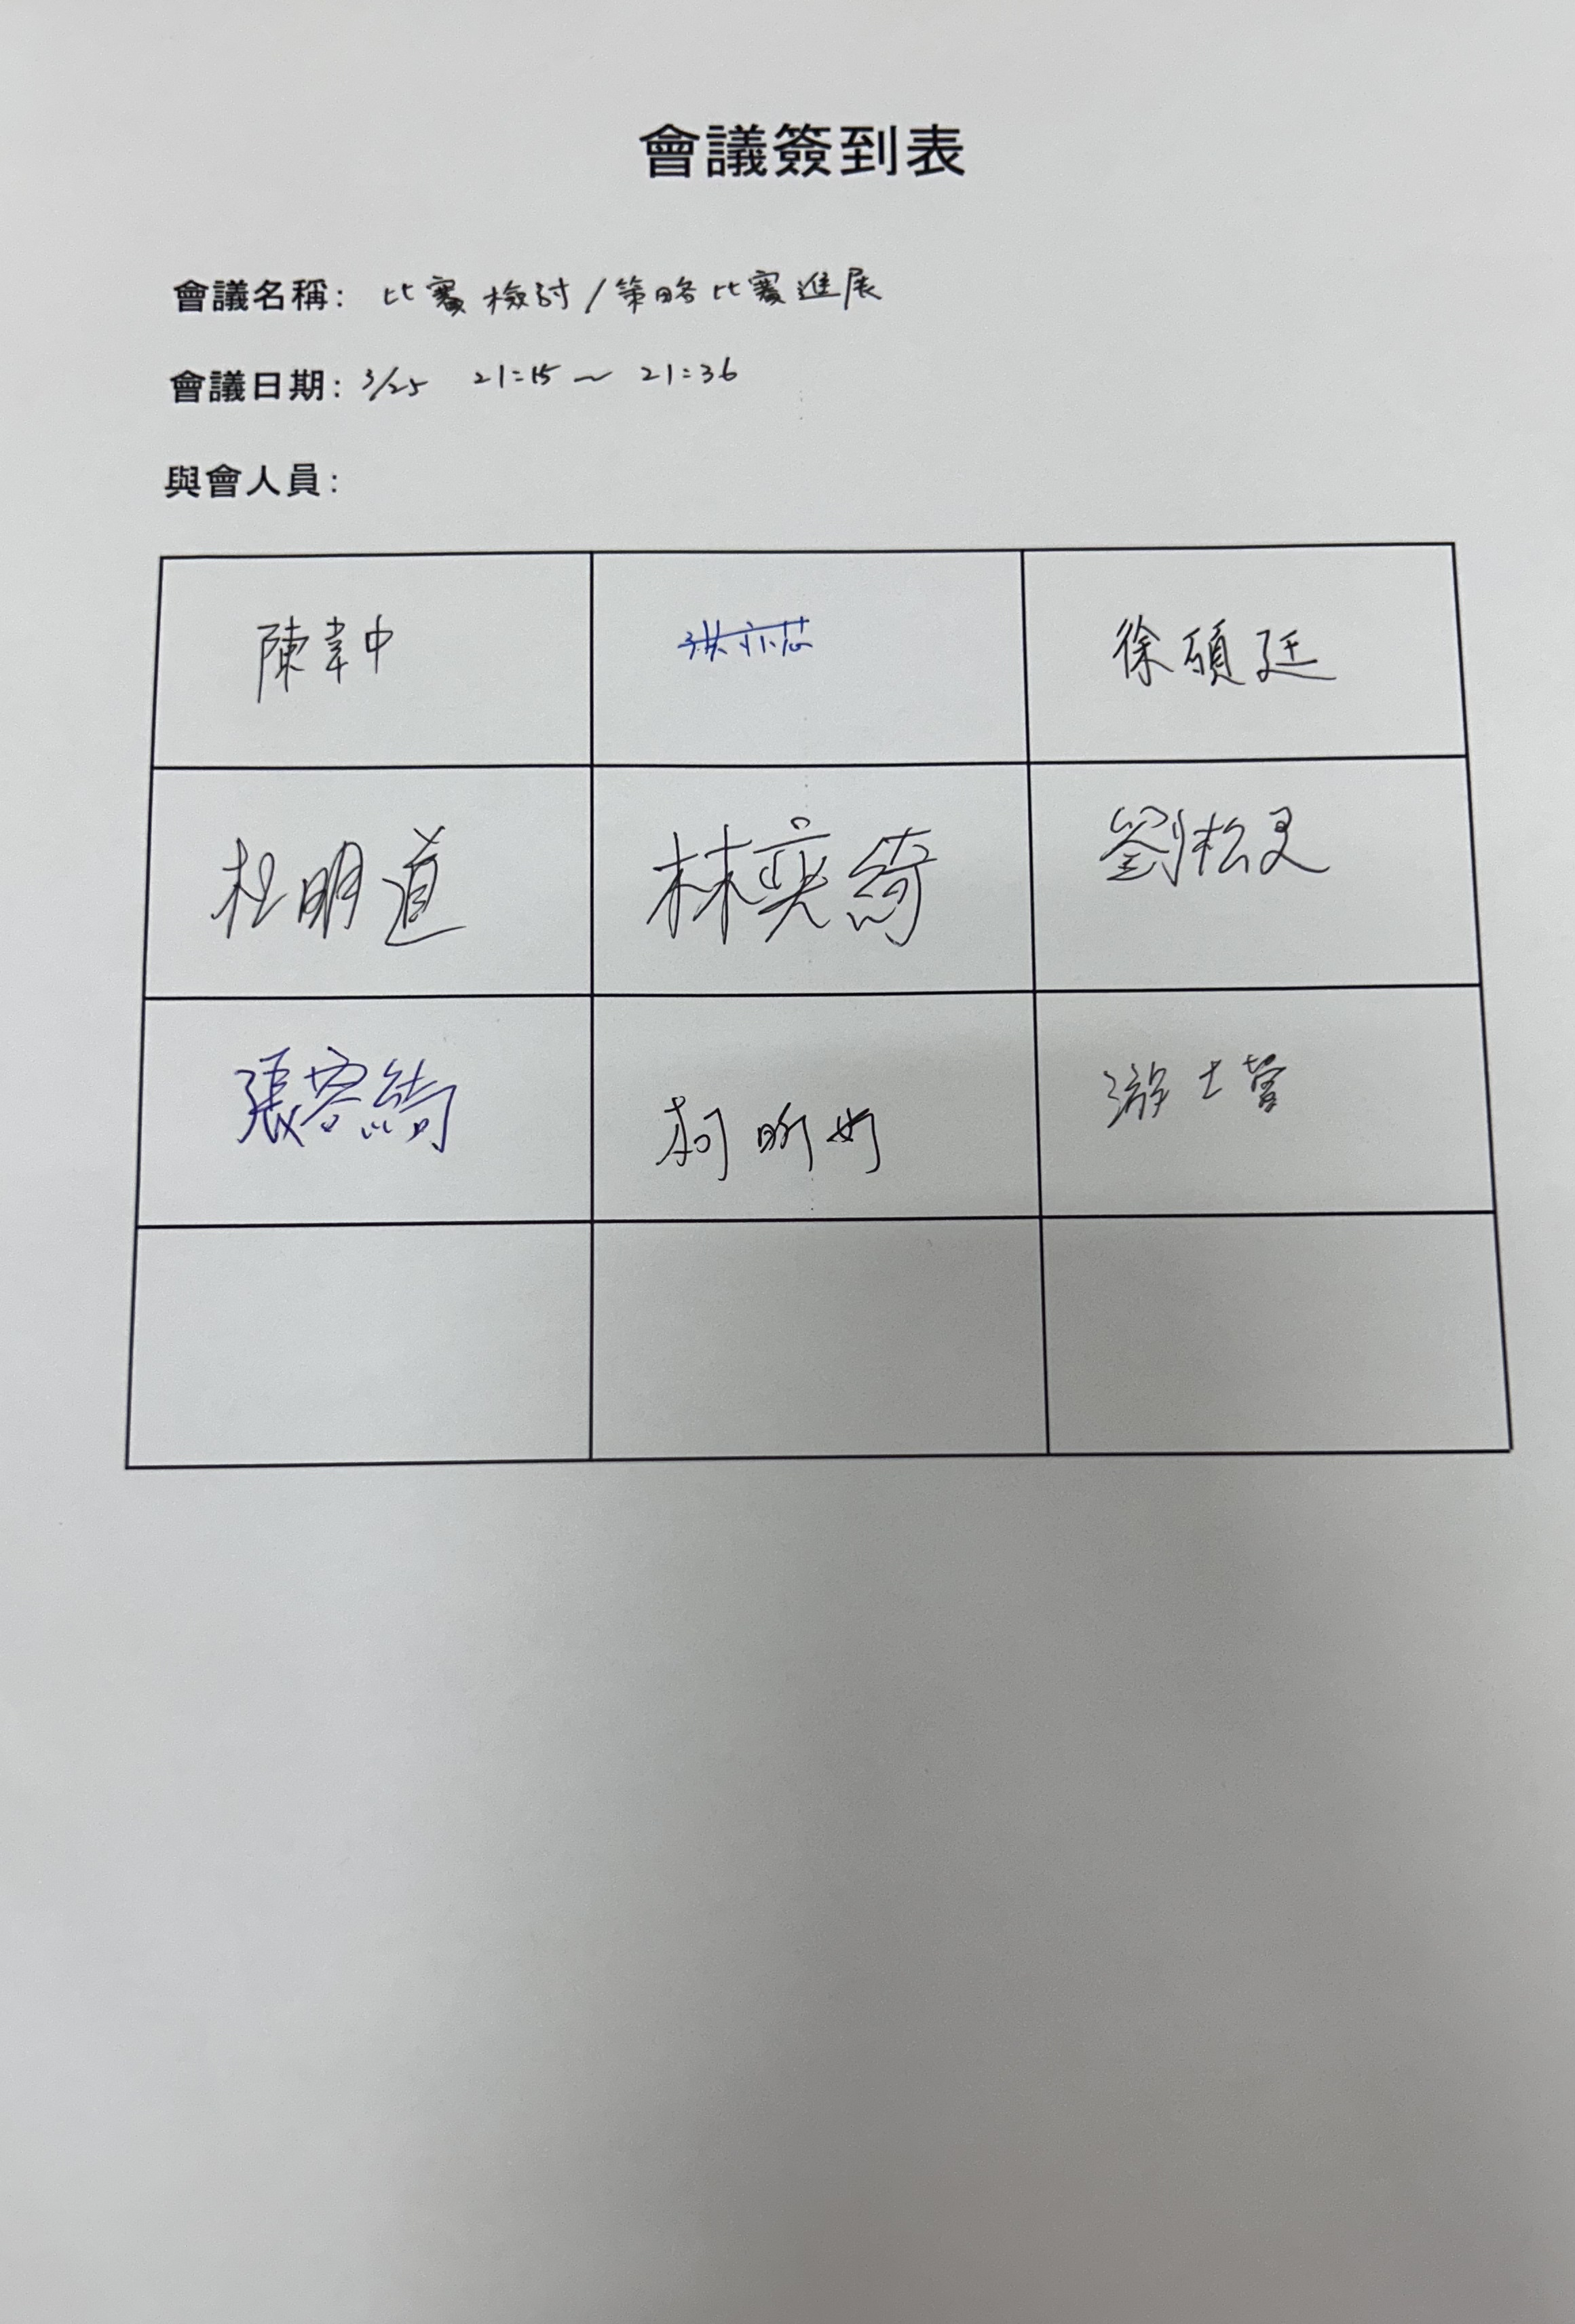 會議簽到表
會議名稱: 比賽檢討/策略比賽進展
會議日期: 3/25 21:15~21:36
與會人員:
陳韋中
徐碩廷
杜明道 林奕綺 劉松旻
張容綺 柯昕妤 游士萱